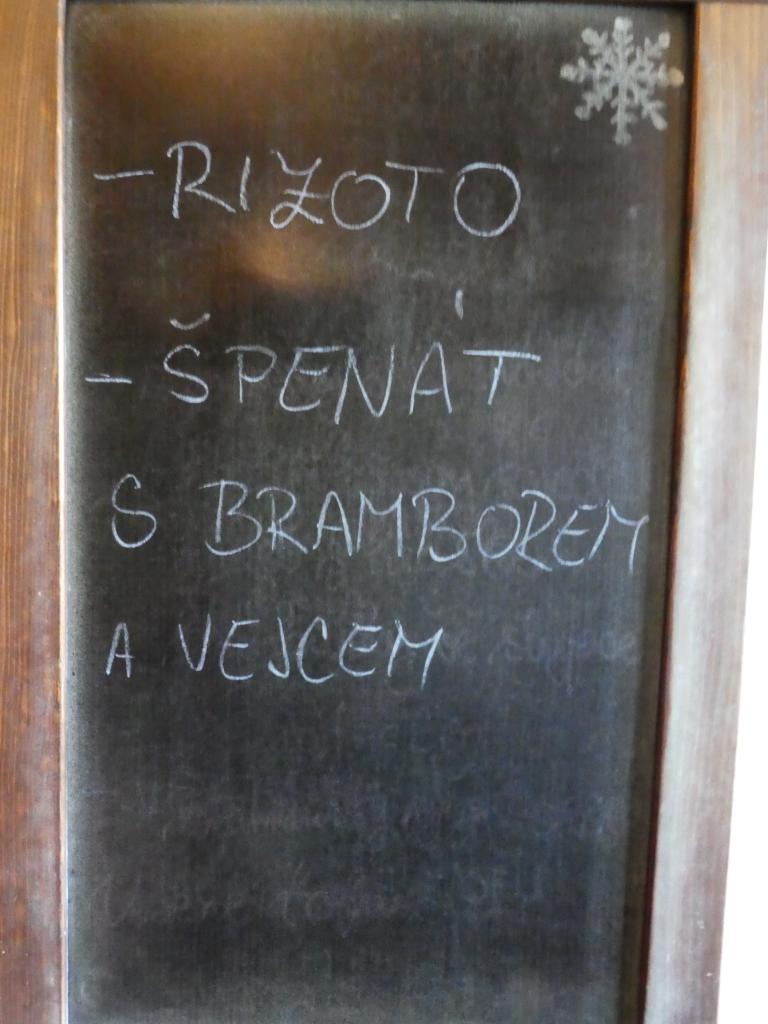 - RIZOTO
- ŠPENÁT
S BRAMBOREM
A VEJCEM